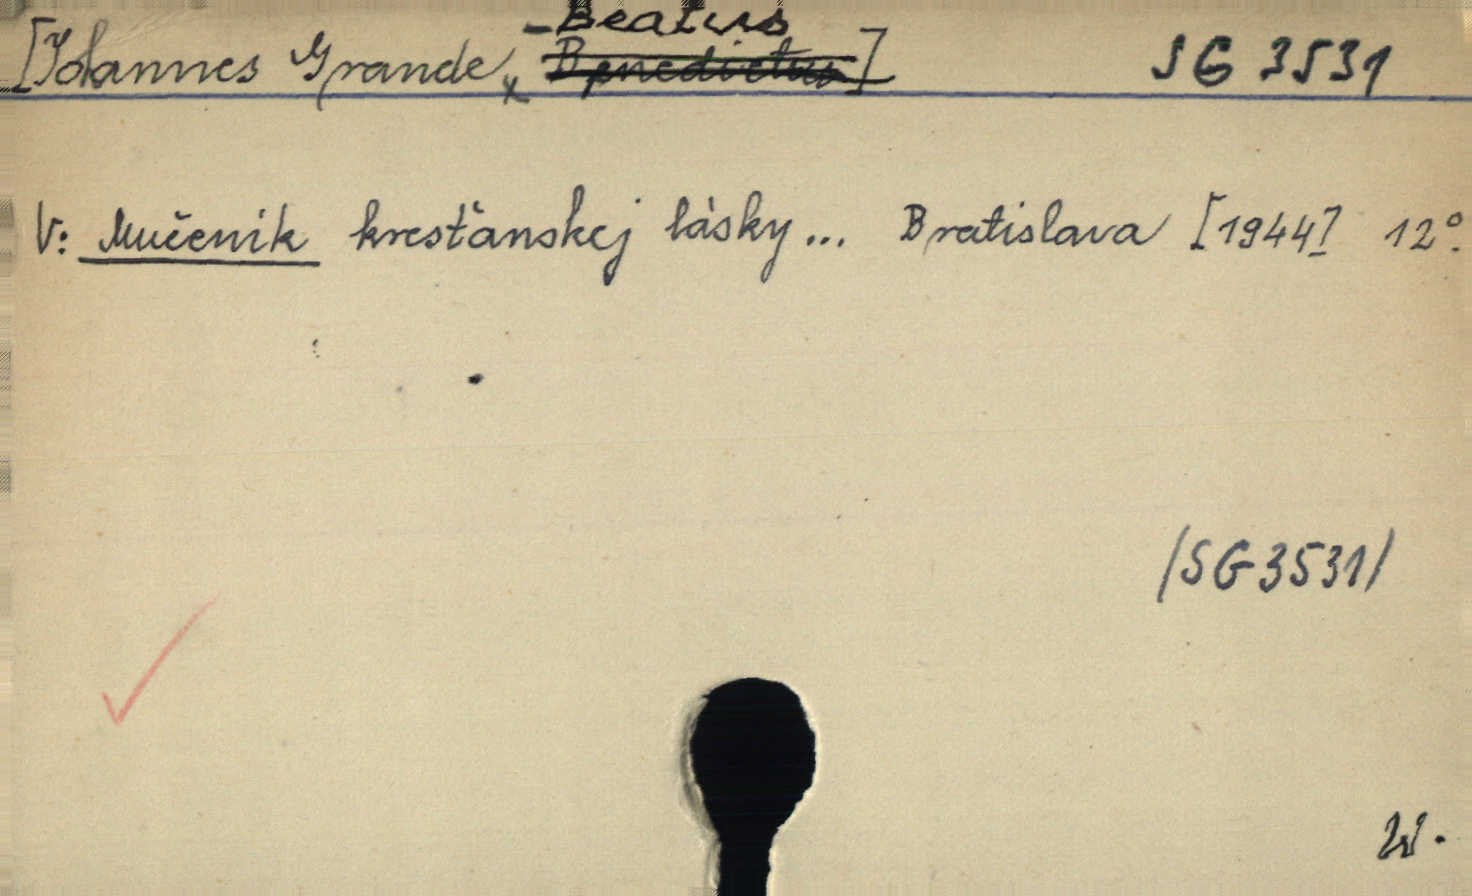 - Beatus
[Johannes Grande, Benedictus] SG 3531
V: Mučeník kresťanskej lásky... Bratislava [1944] 12°.
/SG 3531/
W.